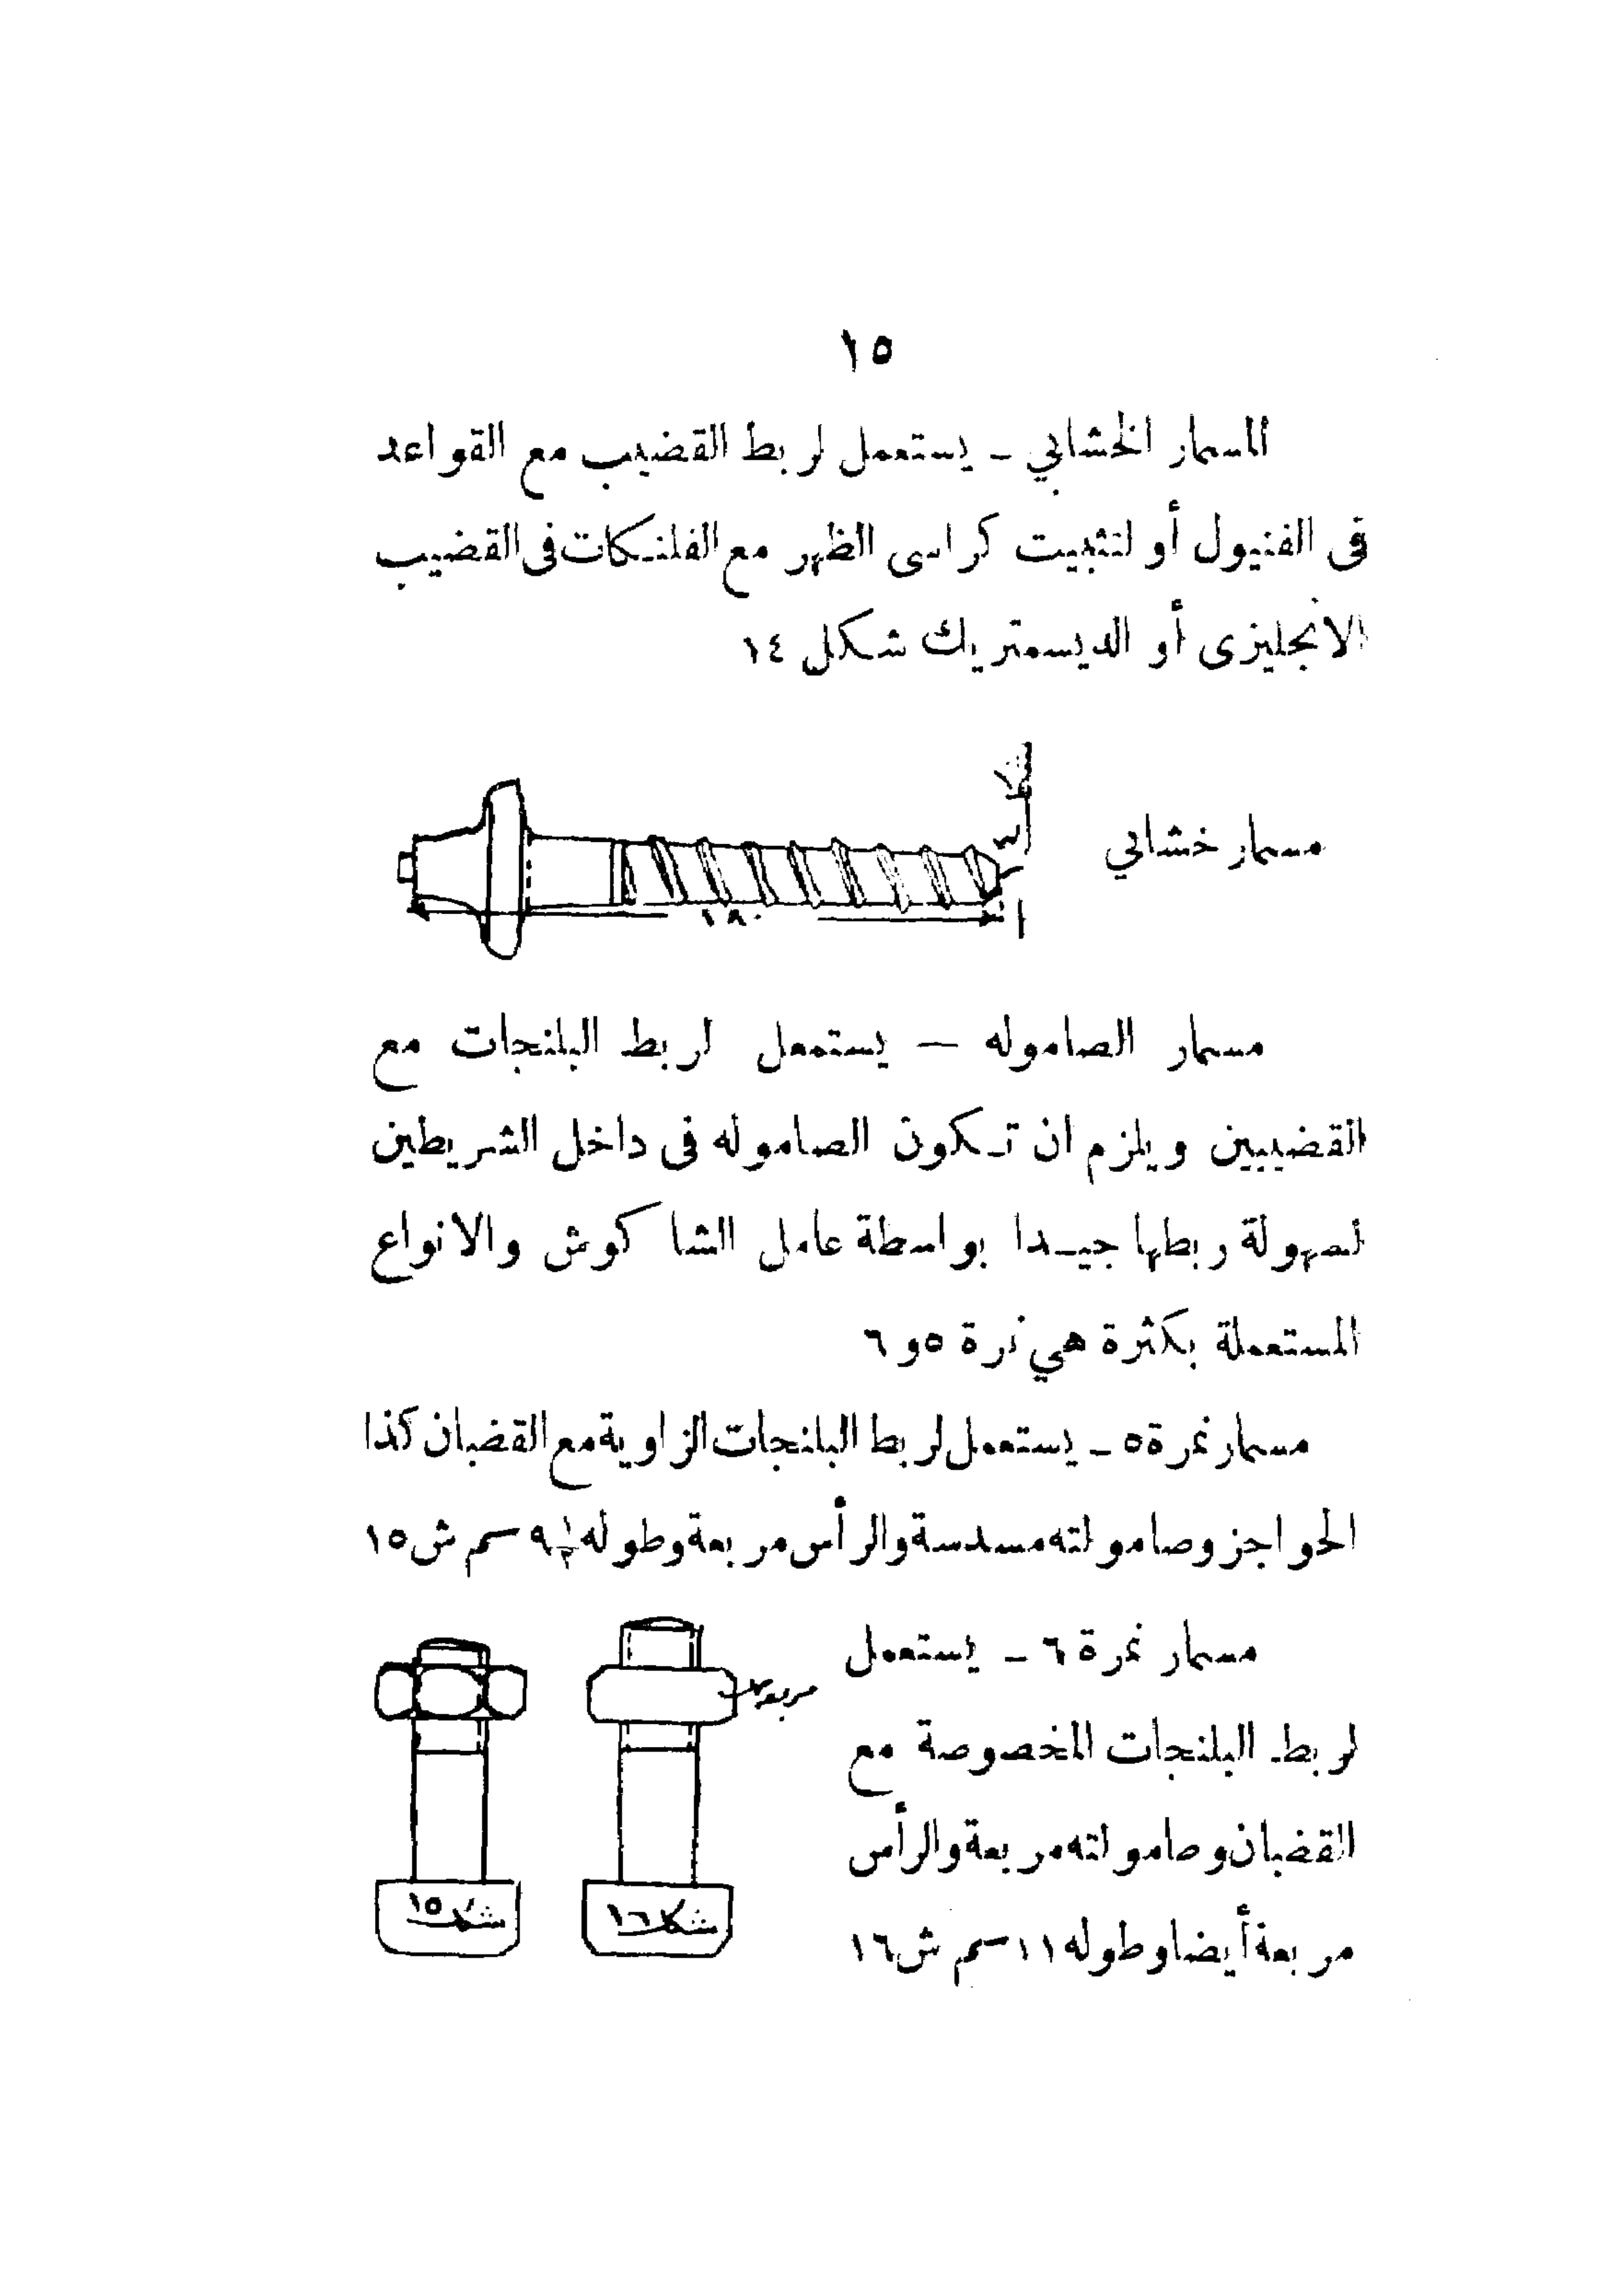 ١٥
المسمار الخشابي - يستعمل لربط القضيب مع القواعد
فى الفنيول أو لتثبيت كراسى الظهر مع الفلنكات فى القضيب
الانجليزى أو الديسمتريك شكل ١٤
مسمار خشابي
١٨٠
مسمار الصاموله — يستعمل لربط البلنجات مع
القضيبين ويلزم ان تكون الصاموله فى داخل الشريطين
لسهولة ربطها جيدا بواسطة عامل الشاكوش والانواع
المستعملة بكثرة هي نمرة ٥ و ٦
مسمار نمرة ٥ - يستعمل لربط البلنجات الزاوية مع القضبان كذا
الحواجز وصامولته مسدسة والرأس مربعة وطوله ٩½ سم ش ١٥
مسمار نمرة ٦ - يستعمل
لربط البلنجات المخصوصة مع
القضبان وصامولته مربعة والرأس
مربعة أيضا وطوله ١١ سم ش ١٦
مربعة
شكل ١٦
شكل ١٥